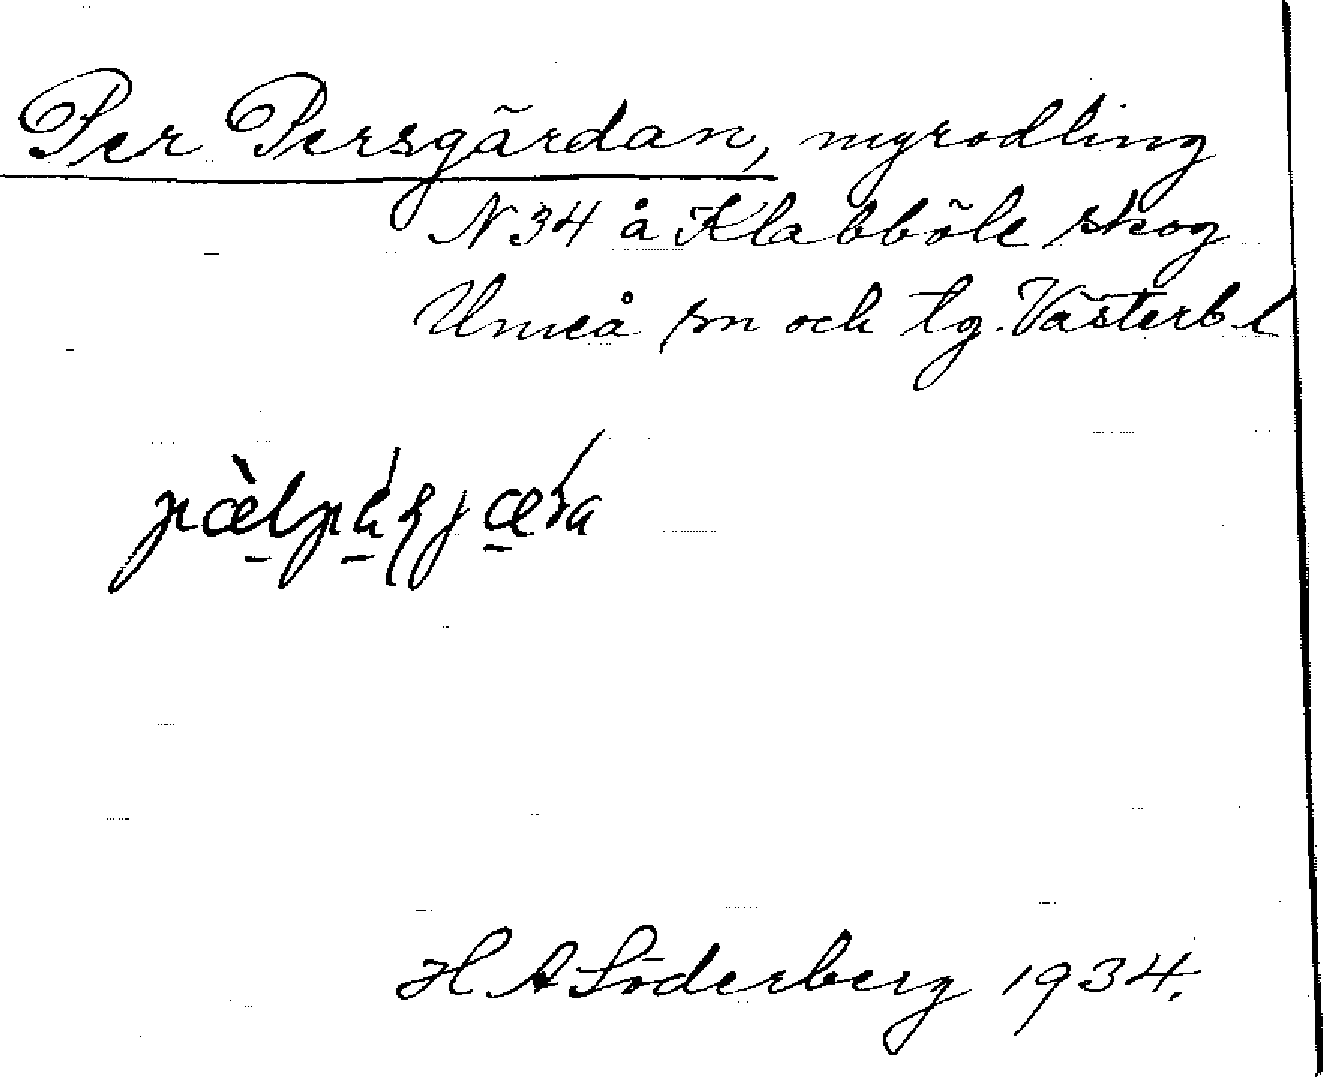 Per Persgärdan, myrodling
N 34 å Klabböle skog
Umeå sn och tg. Västerb. l
H A Söderberg 1934.